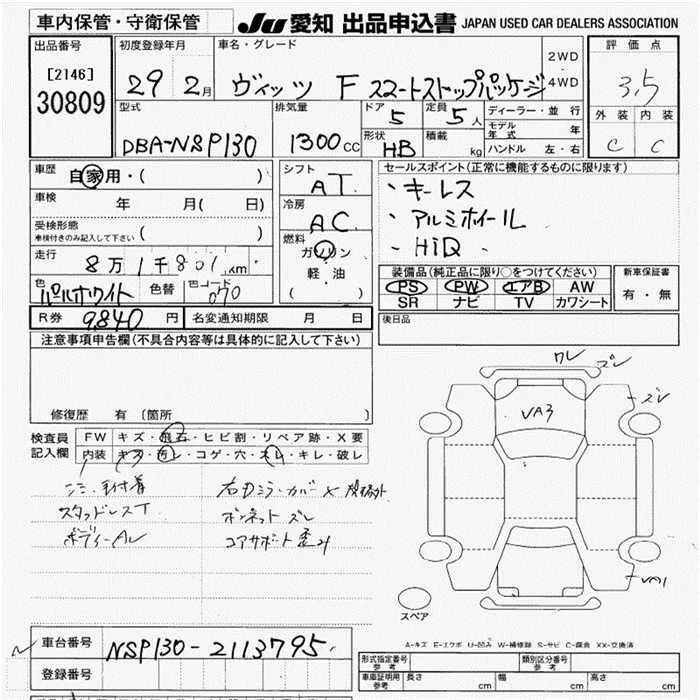 車内保管・守衛保管
JU 愛知 出品申込書 JAPAN USED CAR DEALERS ASSOCIATION
出品番号
[2146]
30809
初度登録年月
29 2月
車名・グレード
ヴィッツ F スマートストップパッケージ
2WD
4WD
評価点
3.5
外装 内装
C C
型式
DBA-NSP130
排気量
1300cc
ドア
5
定員
5人
形状
HB
積載
kg
ディーラー・並行
モデル年式 年
ハンドル 左・右
車歴
自家用・( )
車検
年 月( 日)
受検形態
車検付きのみ記入して下さい ( )
走行
8万1千801km
色
パールホワイト
色替
色コード
070
シフト
AT
冷房
AC
燃料
ガソリン
軽・油
( )
R券 9,840円
名変通知期限 月 日
セールスポイント(正常に機能するものに限ります)
・キーレス
・アルミホイール
・HID
装備品(純正品に限り○をつけてください)
PS PW エアB AW
SR ナビ TV カワシート
新車保証書
有・無
後日品
注意事項申告欄(不具合内容等は具体的に記入して下さい)
修復歴 有 〔箇所 〕
検査員記入欄
FW キズ・飛石・ヒビ割・リペア跡・X要
内装 キズ・汚レ・コゲ・穴・スレ・キレ・破レ
スタッドレスT
ボンネット ズレ
コアサポート 歪み
ワレ
ズレ
ズレ
VA3
VA1
スペア
A-キズ E-エクボ U-凹み W-補修跡 S-サビ C-腐食 XX-交換済
車台番号
NSP130-2113795
登録番号
形式指定番号
参考
類別区分番号
参考
車庫証明用
参考
長さ cm
幅 cm
高さ cm